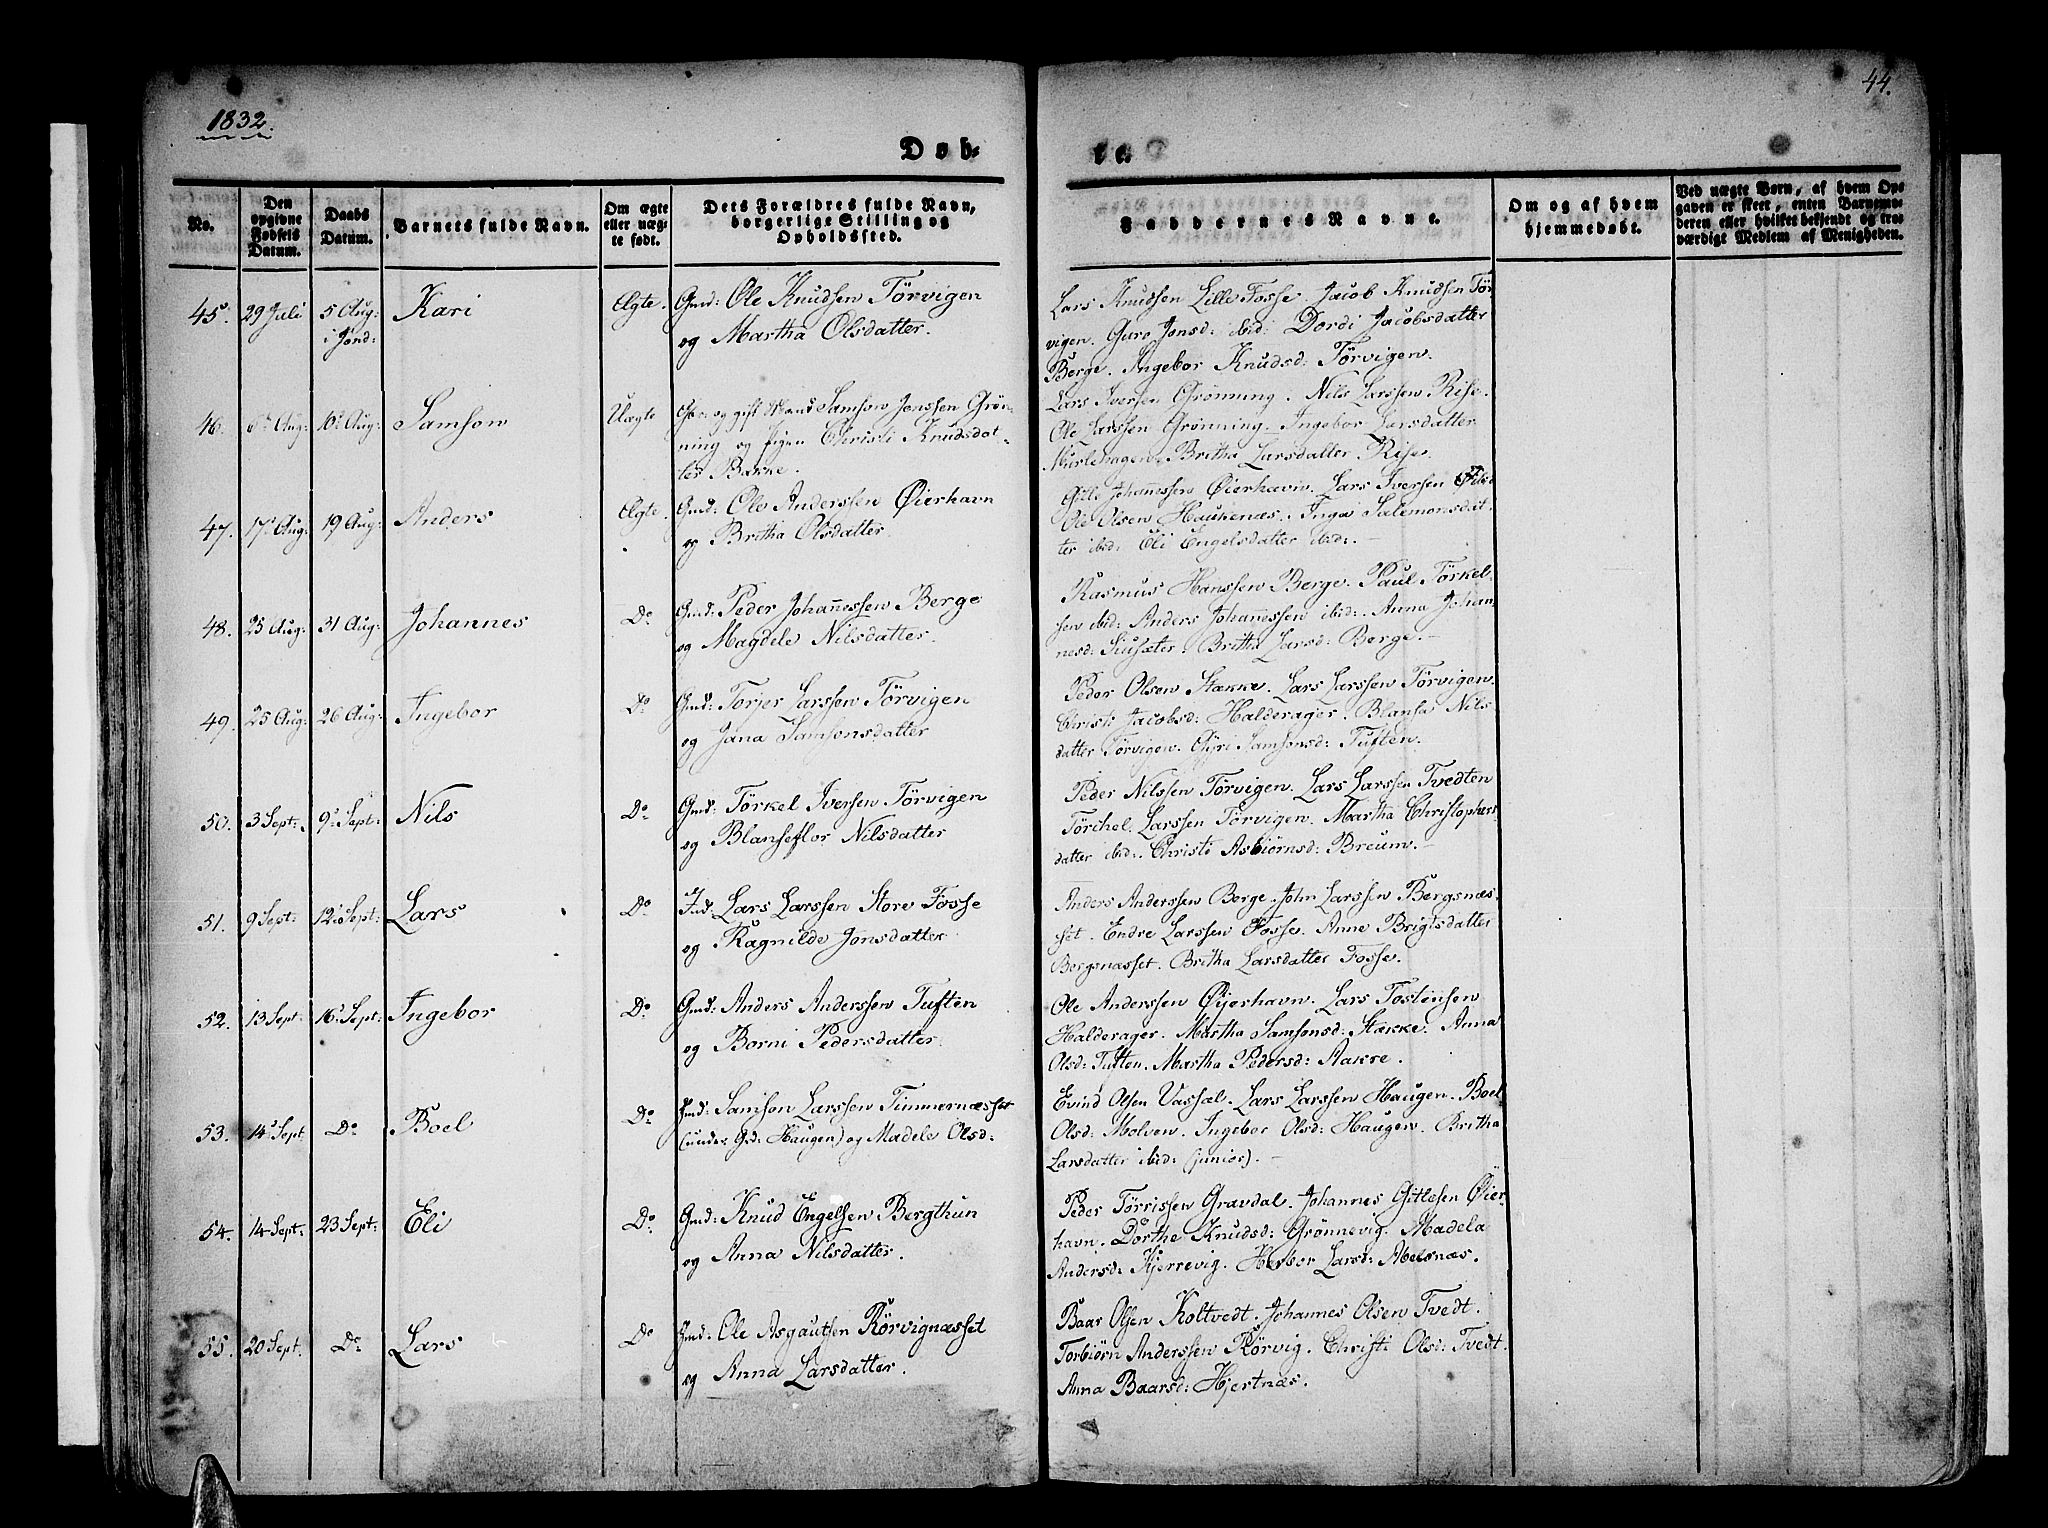 1832.
44.
Døb-
te.
No.
Den opgivne Fødsels Datum.
Daabs Datum.
Barnets fulde Navn.
Om ægte eller uægte født.
Dets Forældres fulde Navn, borgerlige Stilling og Opholdssted.
Faddernes Navne.
Om og af hvem hjemmedøbt.
Ved uægte Børn, af hvem Opgaven er skeet, enten Barnemoderen eller hvilket bekjendt og troværdigt Medlem af Menigheden.
45. 29 Juli 5 Aug: i Jond: Kari Ægte. Gmd: Ole Knudsen Törvigen
og Martha Olsdatter.
Lars Knudsen Lille Fosse. Jacob Knudsen Tör
vigen. Guro Jonsd: ibid: Dordi Jacobsdatter
Berge. Ingebor Knudsd: Törvigen.
46. 6 Aug: 10 Aug: Samson Uægte og gift Mand Samson Jonssen Grøn-
ning og Pigen Christi Knudsdat-
ter Bakke.
Lars Iversen Grønning. Nils Larssen Rise.
Ole Larssen Grønning. Ingebor Larsdatter
Murlehagen. Britha Larsdatter Rise.
47. 17 Aug: 19 Aug: Anders Ægte. Gmd: Ole Anderssen Øierhavn
og Britha Olsdatter.
Gitle Johannessen Øierhavn. Lars Iversen
Ole Olsen Haukenæs. Inga Salemonsdat-
ter ibid: Eli Engelsdatter ibid:.
48. 25 Aug: 31 Aug: Johannes Do Gmd: Peder Johannessen Berge
og Magdele Nilsdatter.
Rasmus Hanssen Berge. Paul Törkel-
sen ibid: Anders Johannessen ibid:. Anna Johan-
nesd: Britha Larsd: Berge.
49. 25 Aug: 26 Aug: Ingebor Do Gmd: Torjer Larssen Törvigen
og Jana Samsonsdatter
Peder Olsen Stække. Lars Larssen Törvigen.
Christi Jacobsd: Halderager. Blansa Nils
datter Törvigen. Samsonsd: Tuften.
50. 3 Sept: 9 Sept: Nils Do Gmd: Törkel Iversen Törvigen
og Blanseflor Nilsdatter
Peder Nilssen Törvigen. Lars Larssen Tvedten
Törchel Larssen Törvigen. Martha Christophers
datter ibid:. Christi Asbiörnsd: Breum.
51. 9 Sept: 12 Sept: Lars Do Ind: Lars Larssen Store Fosse
og Ragnilde Jonsdatter
Anders Anderssen Berge. John Larssen Bergsnæs-
set. Endre Larssen Fosse. Anne Brigtsdatter
Bergsnæsset. Britha Larsdatter Fosse.
52. 13 Sept: 16 Sept: Ingebor Do Gmd: Anders Anderssen Tuften
og Borni Pedersdatter
Ole Anderssen Øijerhavn. Lars Tostensen
Halderager. Martha Samsonsd: Stække. Anna
Olsd: Tuften. Martha Pedersd: Aakre.
53. 14 Sept Do Boel Do Hmd: Samson Larssen Timmernæsset
(under Grd: Haugen) og Madele Olsd:
Evind Olsen Vassal. Lars Larssen Haugen. Boel
Olsd: Molven. Ingebor Olsd: Haugen. Britha
Larsdatter ibid: (junior).
54. 14 Sept: 23 Sept: Eli Do Gmd: Knud Engelsen Bergthun
og Anna Nilsdatter.
Peder Törrissen Gravdal. Johannes Gitlesen Øier-
havn. Dorthe Knudsd: Grönnevig. Madela
Andersd: Kjerrevig. Herbor Larsd: Abelsnæs.
55. 20 Sept. Do Lars Do Hmd: Ole Asgautsen Rörvignæsset
og Anna Larsdatter.
Baar Olsen Holtvedt. Johannes Olsen Tvedt.
Torbiörn Anderssen Rörvig. Christi Olsd: Tvedt.
Anna Baarsd: Hjertnæs.